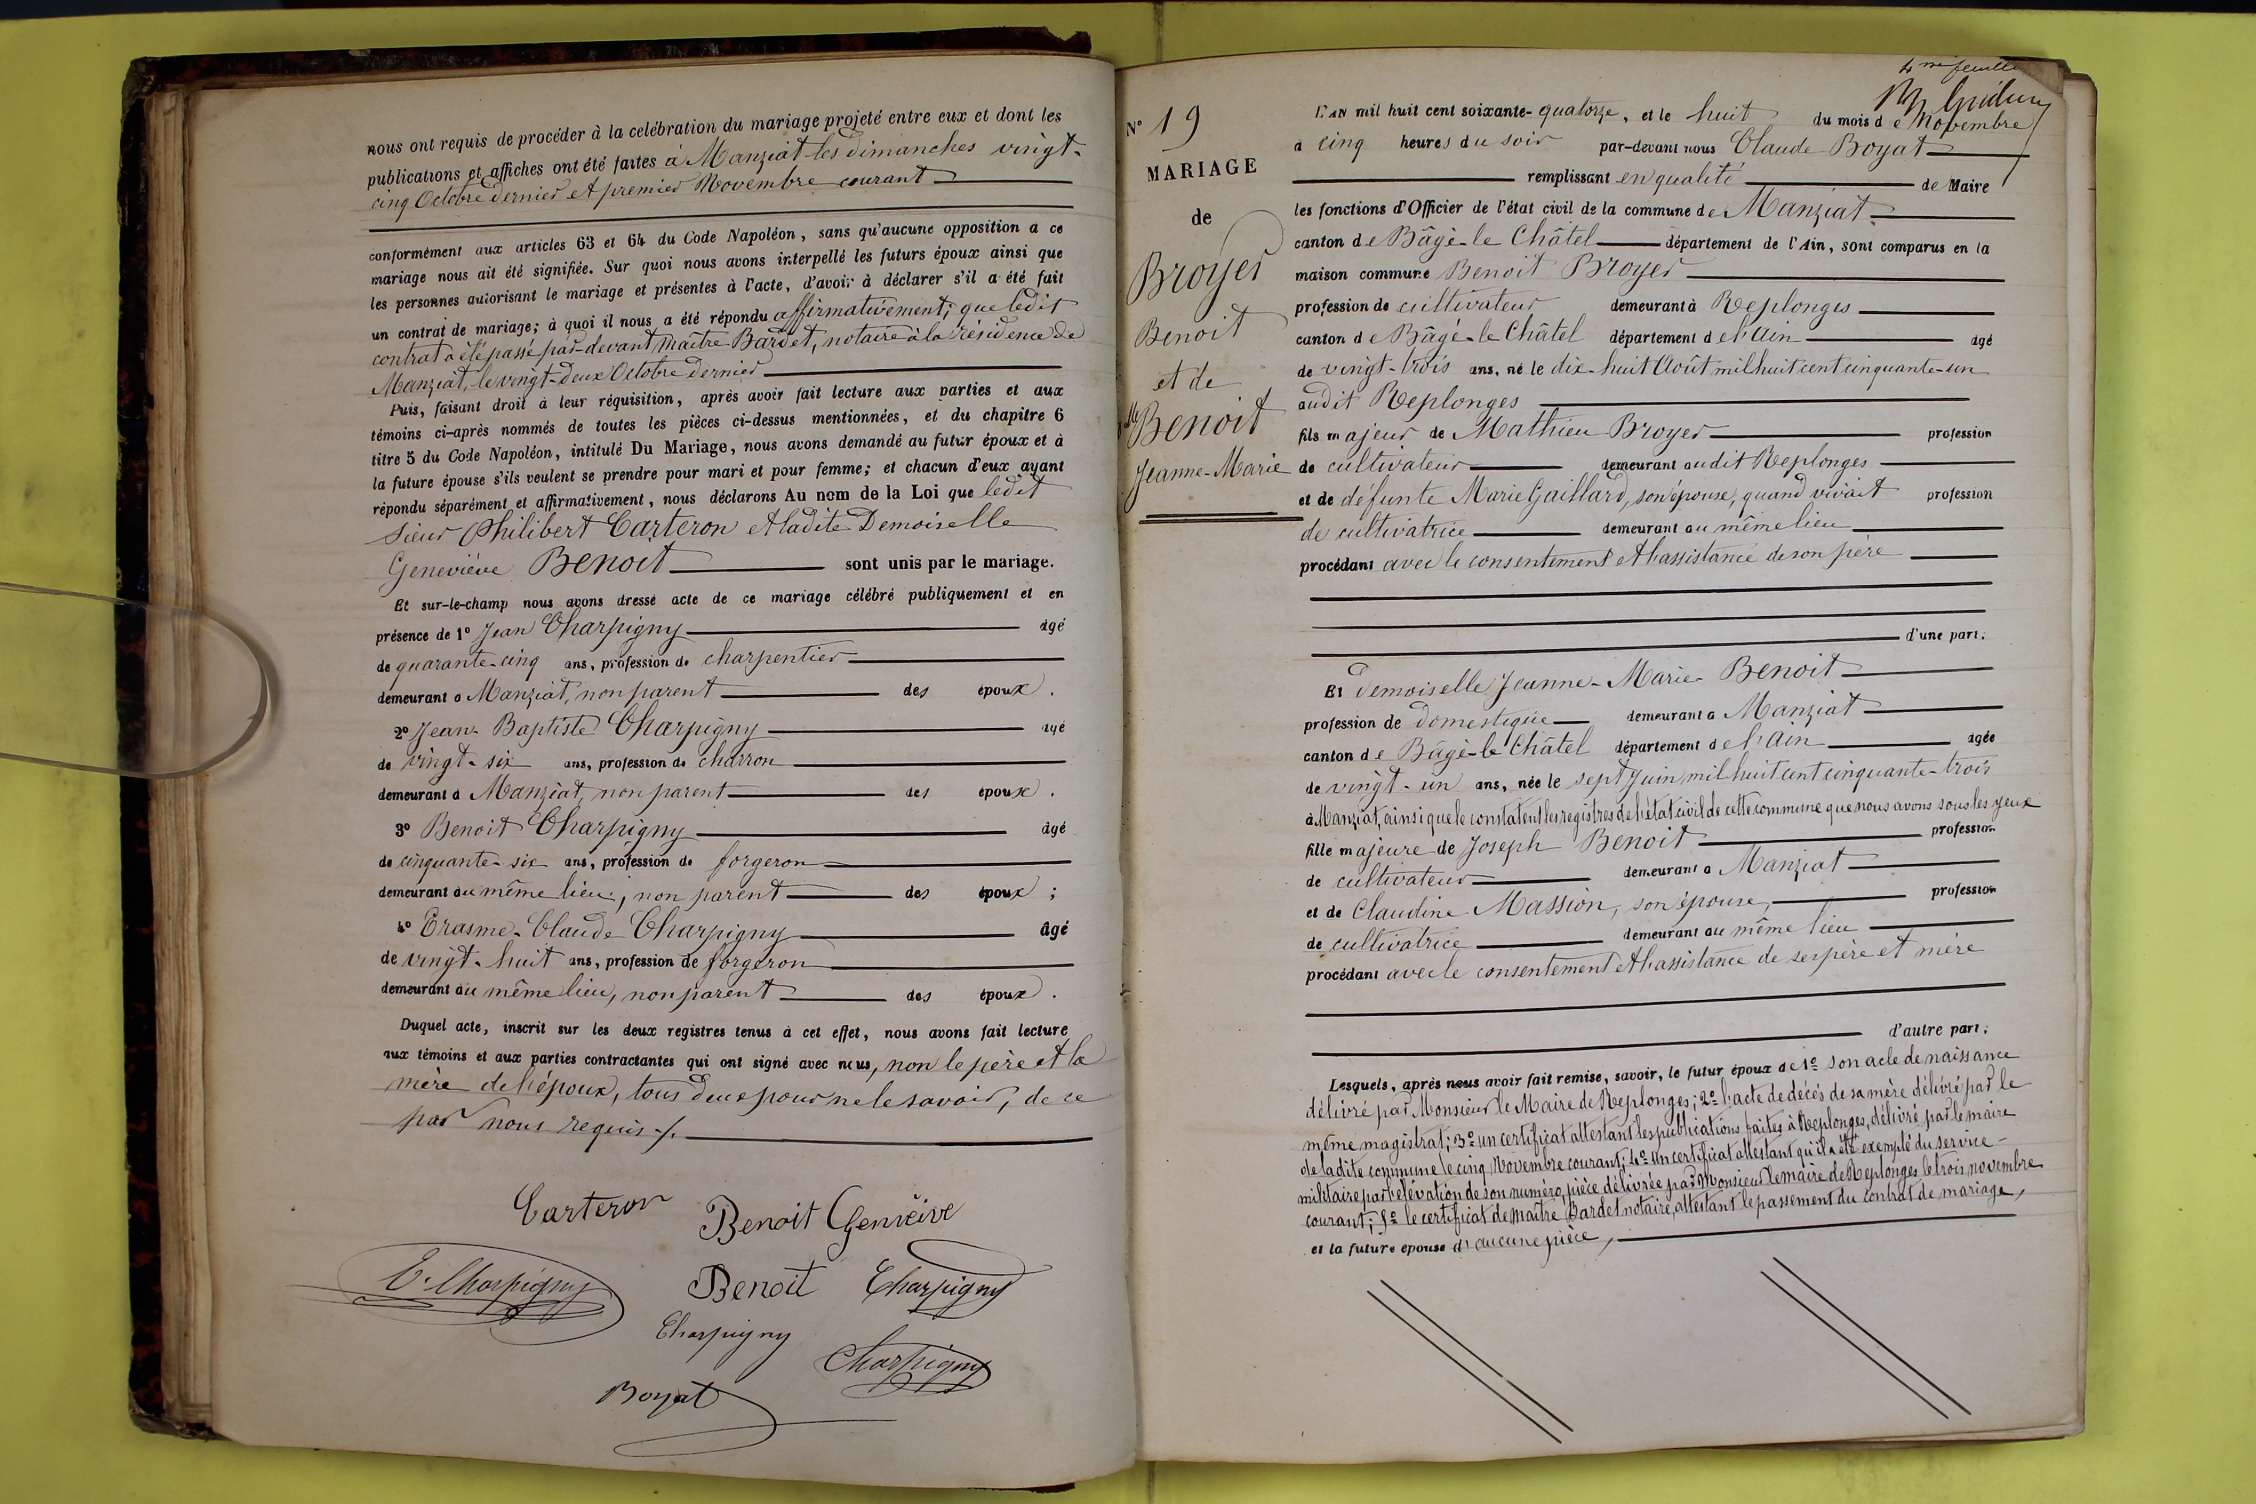 nous ont requis de procéder à la celébration du mariage projeté entre eux et dont les
publications et affiches ont été faites à Manziat les dimanches vingt-
cinq Octobre dernier et premier Novembre courant
conformément aux articles 63 et 64 du Code Napoléon, sans qu'aucune opposition a ce
mariage nous ait été signifiée. Sur quoi nous avons interpellé les futurs époux ainsi que
les personnes autorisant le mariage et présentes à l'acte, d'avoir à déclarer s'il a été fait
un contrat de mariage; à quoi il nous a été répondu affirmativement; que ledit
contrat a été passé par-devant Maître Bardet, notaire à la résidence de
Manziat, le vingt-deux Octobre dernier
Puis, faisant droit à leur réquisition, après avoir fait lecture aux parties et aux
témoins ci-après nommés de toutes les pièces ci-dessus mentionnées, et du chapitre 6
titre 5 du Code Napoléon, intitulé Du Mariage, nous avons demandé au futur époux et à
la future épouse s'ils veulent se prendre pour mari et pour femme; et chacun d'eux ayant
répondu séparément et affirmativement, nous déclarons Au nom de la Loi que ledit
sieur Philibert Carteron et ladite Demoiselle
Geneviève Benoit sont unis par le mariage.
Et sur-le-champ nous avons dressé acte de ce mariage célébré publiquement et en
présence de 1º Jean Charpigny âgé
de quarante-cinq ans, profession de charpentier
demeurant a Manziat, non parent des époux.
2º Jean-Baptiste Charpigny âgé
de vingt-six ans, profession de charron
demeurant à Manziat, non parent des époux.
3º Benoit Charpigny âgé
de cinquante-six ans, profession de forgeron
demeurant au même lieu, non parent des époux;
4º Erasme-Claude Charpigny âgé
de vingt-huit ans, profession de forgeron
demeurant au même lieu, non parent des époux.
Duquel acte, inscrit sur les deux registres tenus à cet effet, nous avons fait lecture
aux témoins et aux parties contractantes qui ont signé avec nous, non le père et la
mère de l'époux, tous deux pour ne le savoir, de ce
par nous requis ./.
Carteron Benoit Genvèive
E. Charpigny Benoit Charpigny
Charpigny
Charpigny
Boyat
4me feuille
Nº 19
MARIAGE
de
Broyer
Benoit
et de
Benoit
Jeanne-Marie
L'AN mil huit cent soixante-quatorze, et le huit du mois de Novembre
a cinq heures du soir par-devant nous Claude Boyat
remplissant en qualité de Maire
les fonctions d'Officier de l'état civil de la commune de Manziat
canton de Bâgé-le Châtel département de l'Ain, sont comparus en la
maison commune Benoit Broyer
profession de cultivateur demeurant à Replonges
canton de Bâgé-le Châtel département de l'Ain âgé
de vingt-trois ans, né le dix-huit Août mil huit cent cinquante-un
audit Replonges
fils majeur de Mathieu Broyer profession
de cultivateur demeurant audit Replonges
et de défunte Marie Gaillard, son épouse, quand vivait profession
de cultivatrice demeurant au même lieu
procédant avec le consentement et l'assistance de son père
d'une part;
Et Demoiselle Jeanne-Marie Benoit
profession de domestique demeurant a Manziat
canton de Bâgé-le Châtel département de l'Ain âgée
de vingt-un ans, née le sept Juin mil huit cent cinquante-trois
à Manziat, ainsi que le constatent les registres de l'état civil de cette commune que nous avons sous les yeux
fille majeure de Joseph Benoit profession
de cultivateur demeurant a Manziat
et de Claudine Massion, son épouse, profession
de cultivatrice demeurant au même lieu
procédant avec le consentement et l'assistance de ses père et mère
d'autre part;
Lesquels, après nous avoir fait remise, savoir, le futur époux de 1º son acte de naissance
délivré par Monsieur le Maire de Replonges; 2º l'acte de décès de sa mère délivré par le
même magistrat; 3º un certificat attestant les publications faites à Replonges, délivré par le maire
de ladite commune le cinq Novembre courant; 4º un certificat attestant qu'il a été exempté du service
militaire par l'élévation de son numéro, pièce délivrée par Monsieur le maire de Replonges le trois novembre
courant; 5º le certificat de Maître Bardet notaire, attestant le passement du contrat de mariage,
et la future épouse d'aucune pièce,